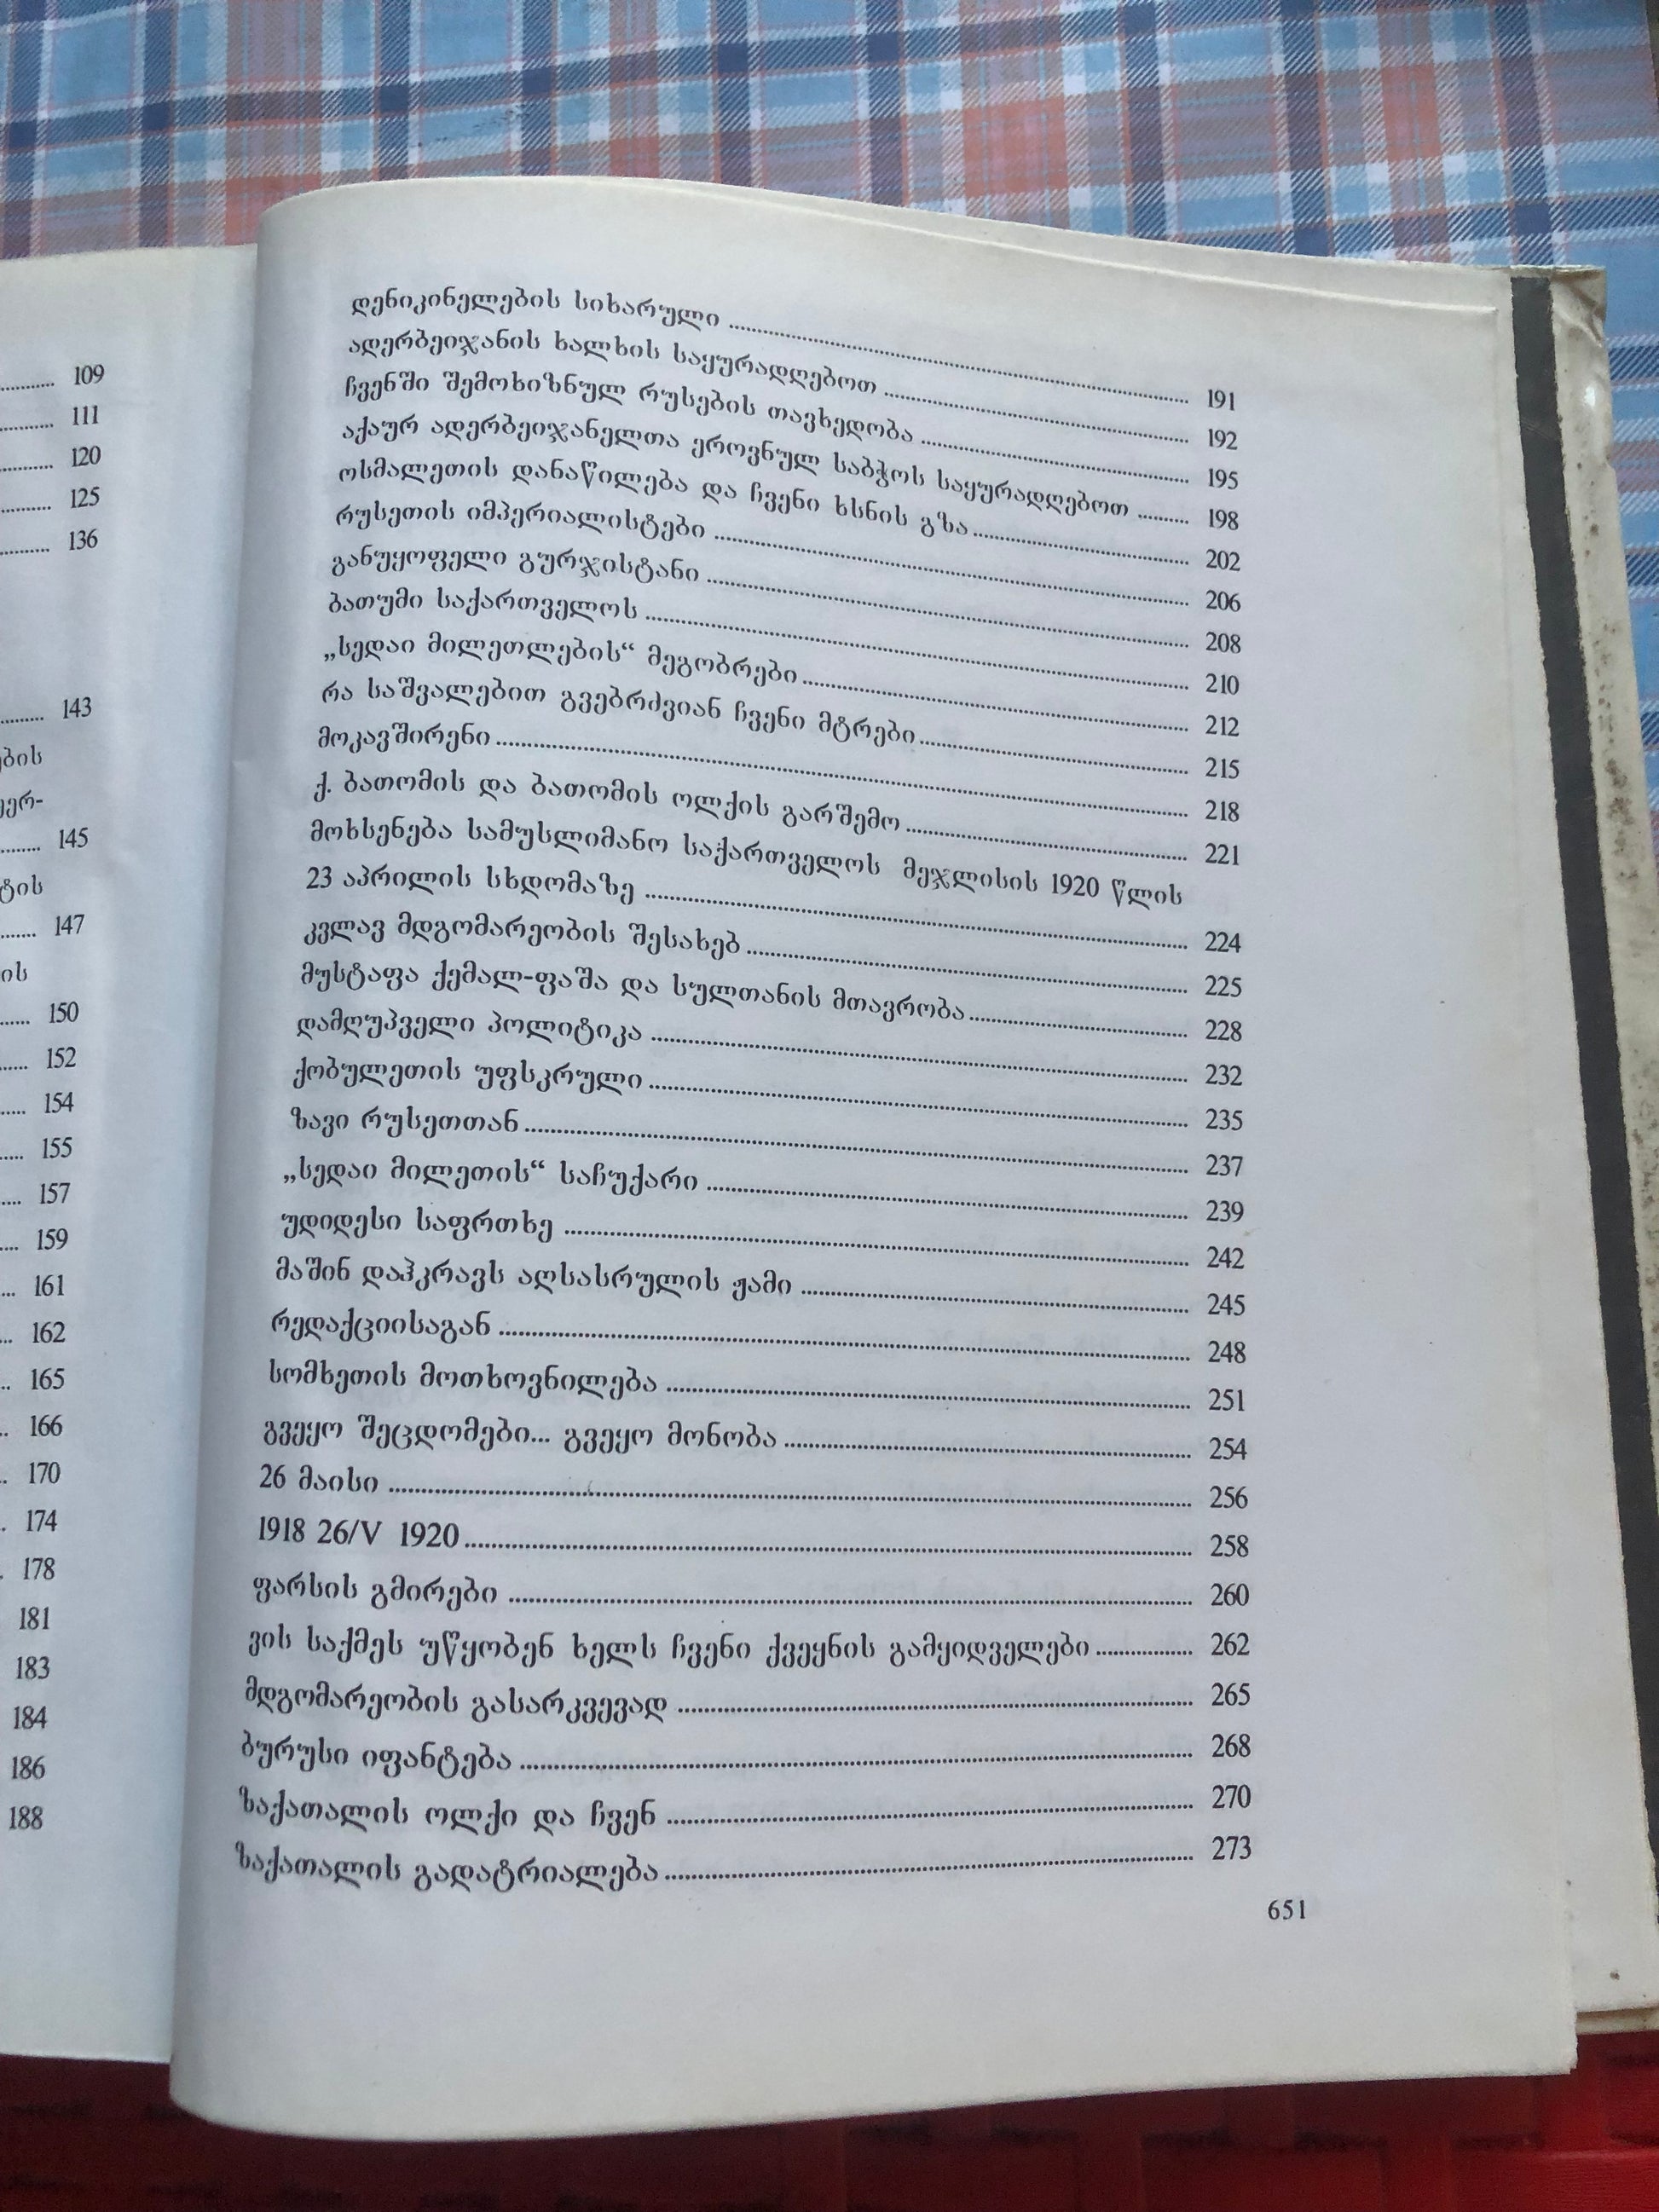 109
111
120
125
136
143
ბის
ერ-
145
ტის
147
ის
150
152
154
155
157
159
161
162
165
166
170
174
178
181
183
184
186
188
დენიკინელების სიხარული ........ 191
ადერბეიჯანის ხალხის საყურადღებოთ ........ 192
ჩვენში შემოხიზნულ რუსების თავხედობა ........ 195
აქაურ ადერბეიჯანელთა ეროვნულ საბჭოს საყურადღებოთ ........ 198
ოსმალეთის დანაწილება და ჩვენი ხსნის გზა ........ 202
რუსეთის იმპერიალისტები ........ 206
განუყოფელი გურჯისტანი ........ 208
ბათუმი საქართველოს ........ 210
„სედაი მილეთლების“ მეგობრები ........ 212
რა საშვალებით გვებრძვიან ჩვენი მტრები ........ 215
მოკავშირენი ........ 218
ქ. ბათომის და ბათომის ოლქის გარშემო ........ 221
მოხსენება სამუსლიმანო საქართველოს მეჯლისის 1920 წლის
23 აპრილის სხდომაზე ........ 224
კვლავ მდგომარეობის შესახებ ........ 225
მუსტაფა ქემალ-ფაშა და სულთანის მთავრობა ........ 228
დამღუპველი პოლიტიკა ........ 232
ქობულეთის უფსკრული ........ 235
ზავი რუსეთთან ........ 237
„სედაი მილეთის“ საჩუქარი ........ 239
უდიდესი საფრთხე ........ 242
მაშინ დაჰკრავს აღსასრულის ჟამი ........ 245
რედაქციისაგან ........ 248
სომხეთის მოთხოვნილება ........ 251
გვეყო შეცდომები... გვეყო მონობა ........ 254
26 მაისი ........ 256
1918 26/V 1920 ........ 258
ფარსის გმირები ........ 260
ვის საქმეს უწყობენ ხელს ჩვენი ქვეყნის გამყიდველები ........ 262
მდგომარეობის გასარკვევად ........ 265
ბურუსი იფანტება ........ 268
ზაქათალის ოლქი და ჩვენ ........ 270
ზაქათალის გადატრიალება ........ 273
651